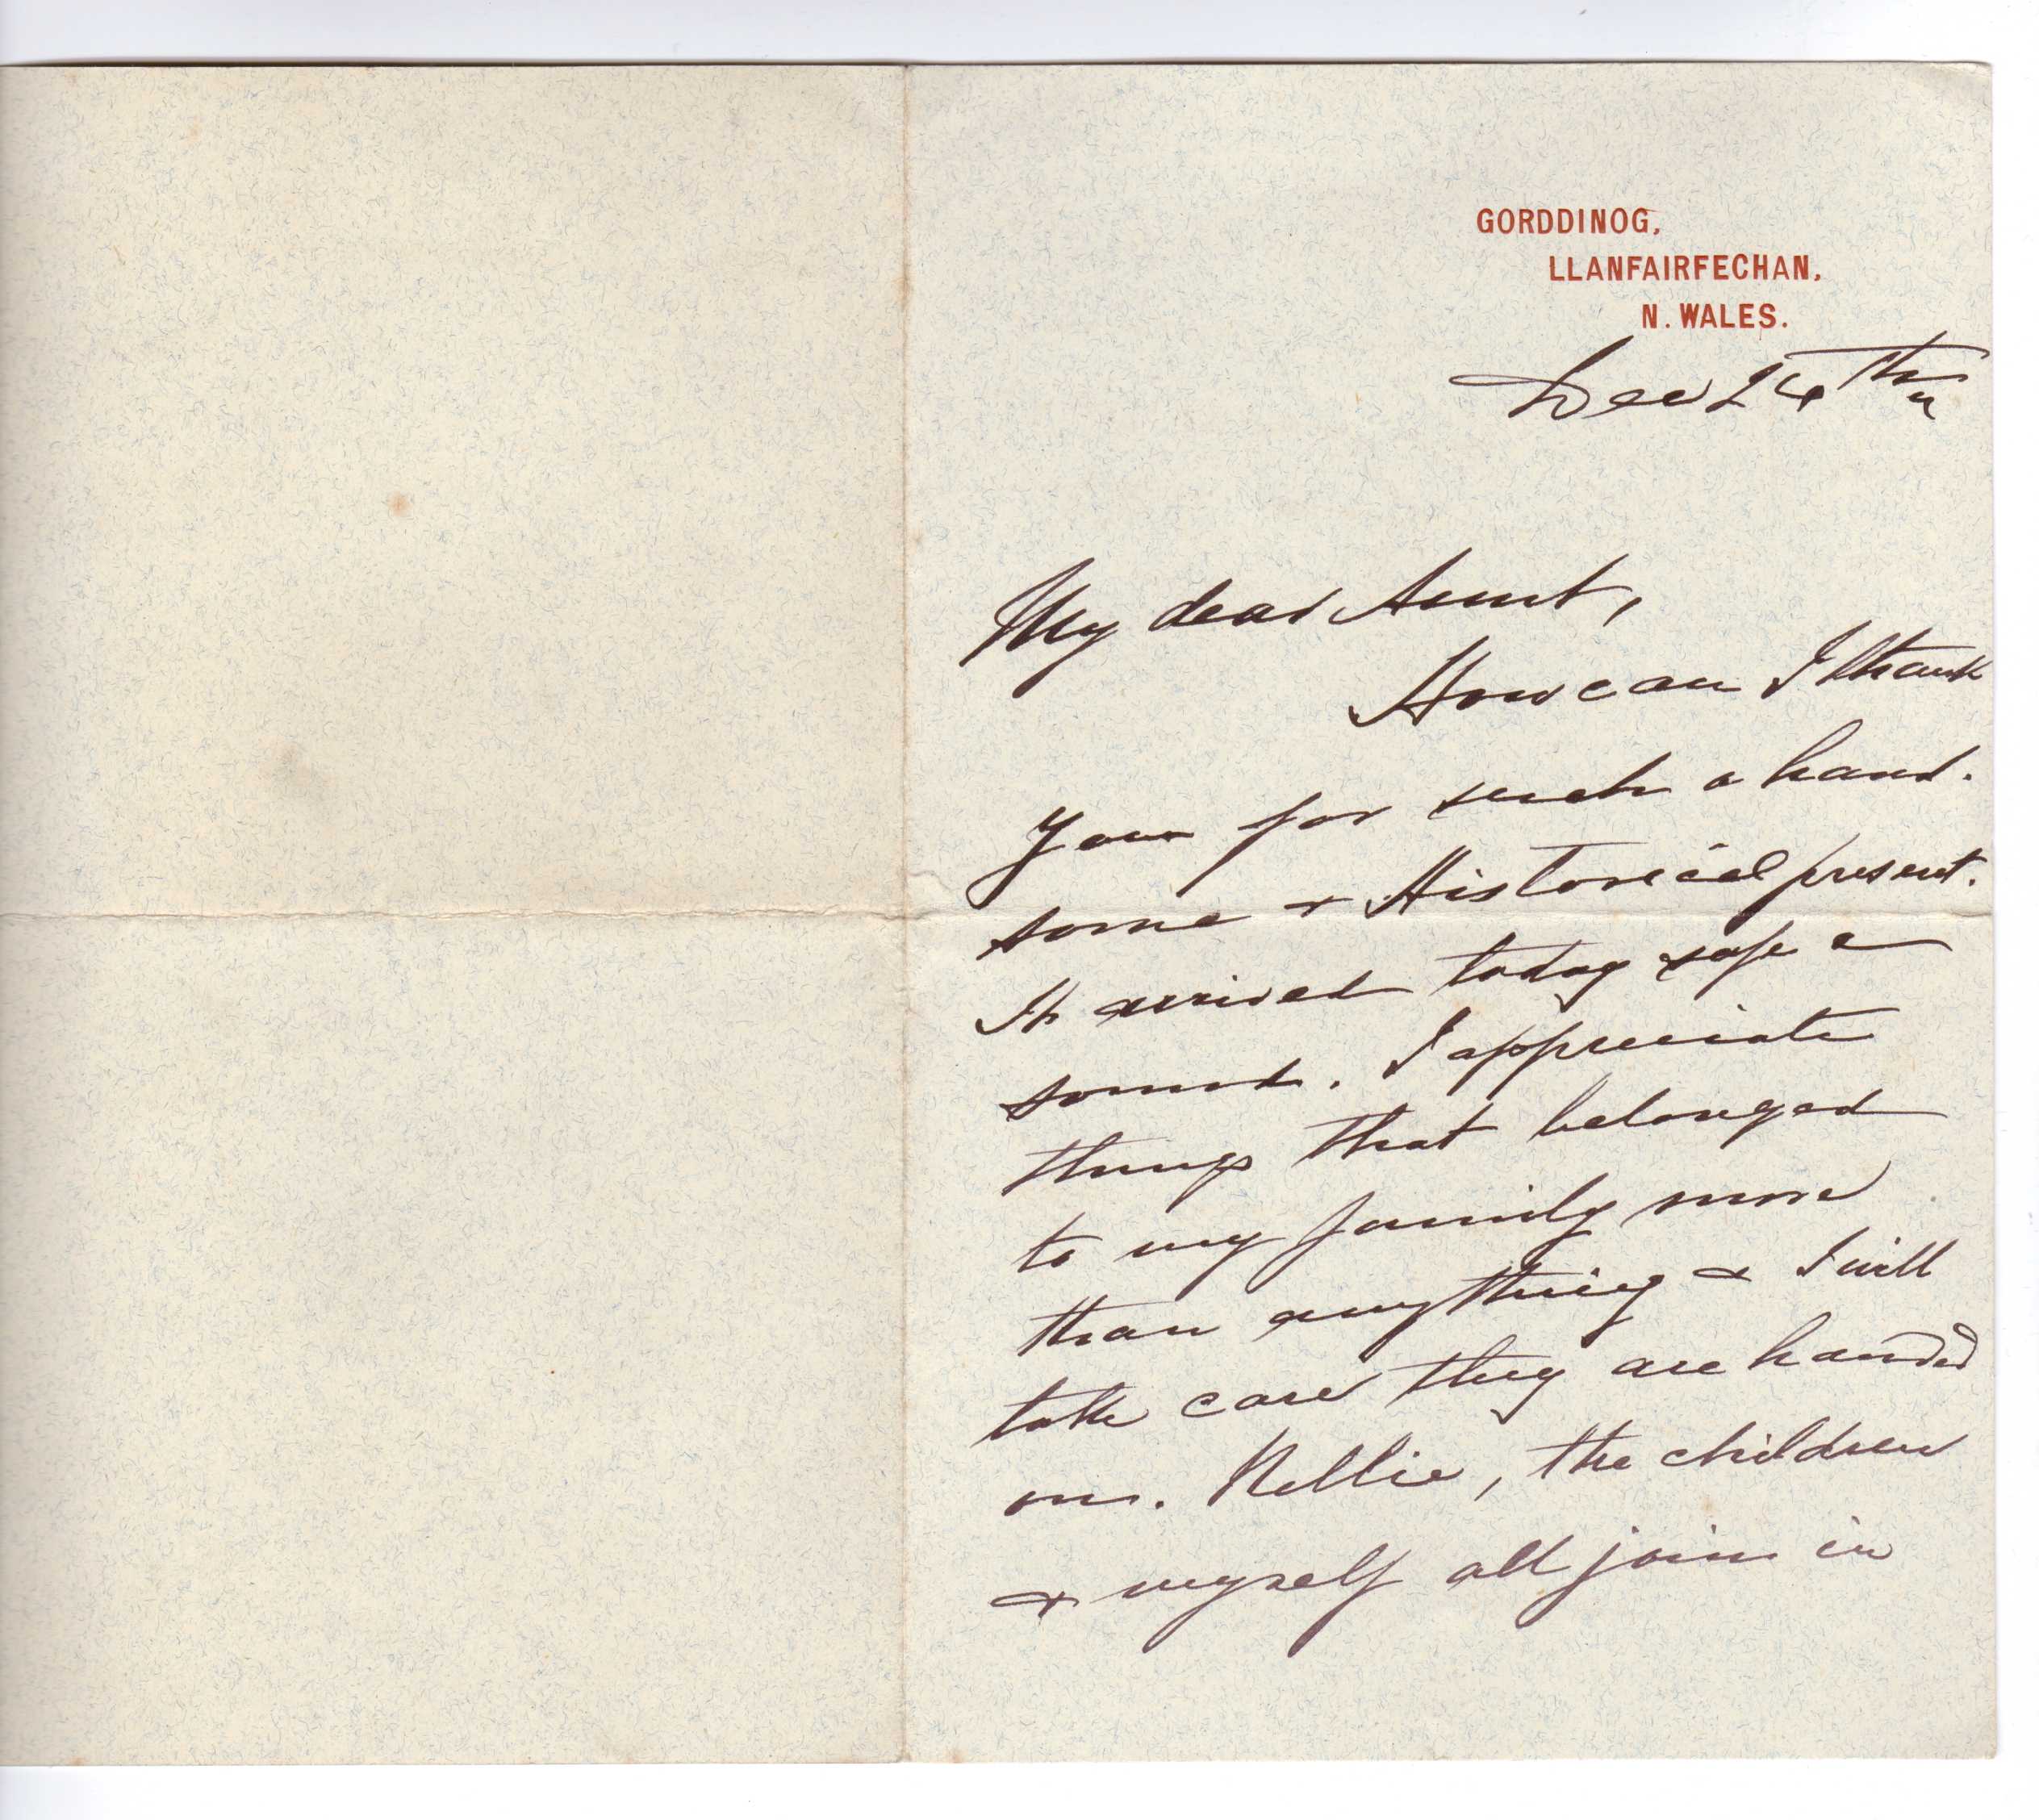 GORDDINOG,
LLANFAIRFECHAN,
N. WALES.
Dec 24th
My dear Aunt,
How can I thank
you for such a hand-
some & Historical present.
It arrived today safe &
sound. I appreciate
things that belonged
to my family more
than anything & I will
take care they are handed
on. Nellie, the children
& myself all join in